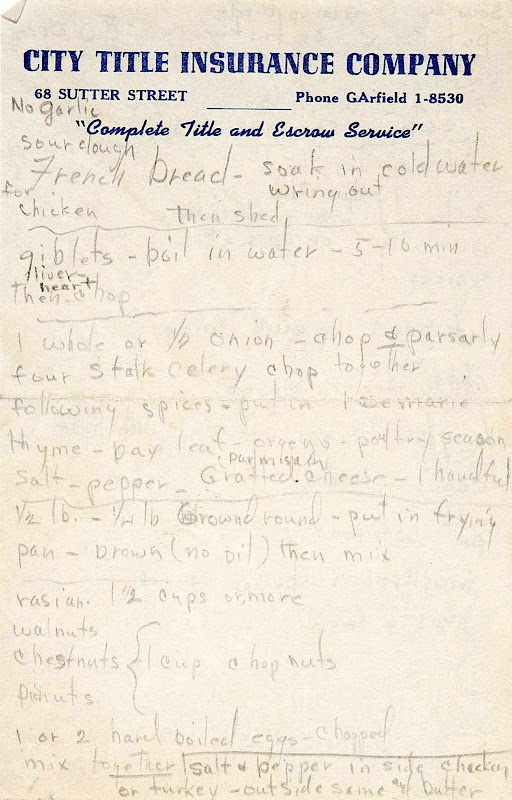 CITY TITLE INSURANCE COMPANY
68 SUTTER STREET Phone GArfield 1-8530
"Complete Title and Escrow Service"
No garlic
sourdough
French bread - soak in cold water
wring out
for
chicken then shed
giblets - boil in water - 5-10 min
liver -
heart
then chop
1 whole or 1/2 onion - chop & parsarly
four stalk celery chop together
following spices - put in rosemarie
thyme - bay leaf - orgeno - poltry season
parmisain
salt - pepper - Gratted cheese - 1 handful
1/2 lb. - 1/4 lb Ground round - put in frying
pan - brown (no oil) then mix
rasian. 1 1/2 cups or more
walnuts
chestnuts 1 cup chop nuts
pinuts
1 or 2 hard boiled eggs - chopped
mix together salt & pepper in side chicken
or turkey - outside same & butter